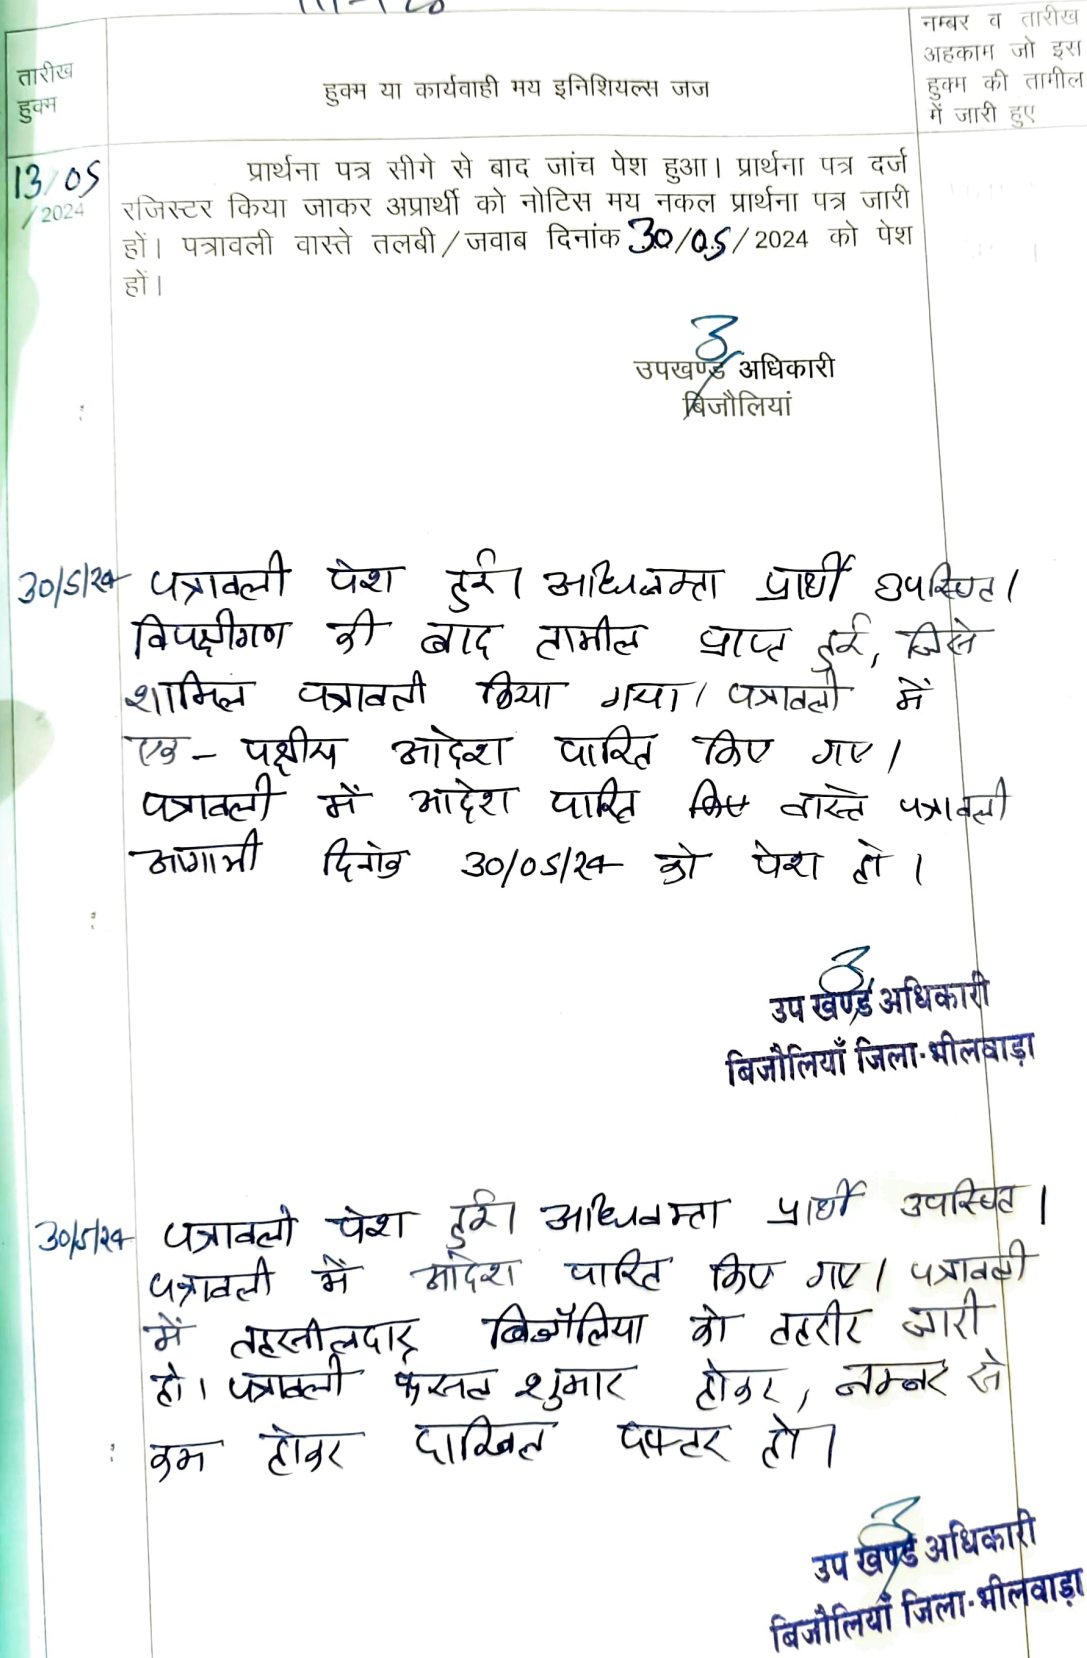 तारीख
हुक्म
हुक्म या कार्यवाही मय इनिशियल्स जज
नम्बर व तारीख
अहकाम जो इस
हुक्म की तामील
में जारी हुए
13/05
/2024
प्रार्थना पत्र सीगे से बाद जांच पेश हुआ। प्रार्थना पत्र दर्ज
रजिस्टर किया जाकर अप्रार्थी को नोटिस मय नकल प्रार्थना पत्र जारी
हों। पत्रावली वास्ते तलबी/जवाब दिनांक 30/05/2024 को पेश
हों।
उपखण्ड अधिकारी
बिजौलियां
30/5/24 पत्रावली पेश हुई। अधिवक्ता प्रार्थी उपस्थित।
विपक्षीगण की बाद तामील प्राप्त हुई, जिसे
शामिल पत्रावली किया गया। पत्रावली में
एक-पक्षीय आदेश पारित किए गए।
पत्रावली में आदेश पारित किए वास्ते पत्रावली
आगामी दिनांक 30/05/24 को पेश हो।
उप खण्ड अधिकारी
बिजौलियाँ जिला-भीलवाड़ा
30/5/24 पत्रावली पेश हुई। अधिवक्ता प्रार्थी उपस्थित।
पत्रावली में आदेश पारित किए गए। पत्रावली
में तहसीलदार बिजौलिया को तहरीर जारी
हो। पत्रावली फैसल शुमार होकर, नम्बर से
कम होकर दाखिल दफ्तर हो।
उप खण्ड अधिकारी
बिजौलियाँ जिला-भीलवाड़ा